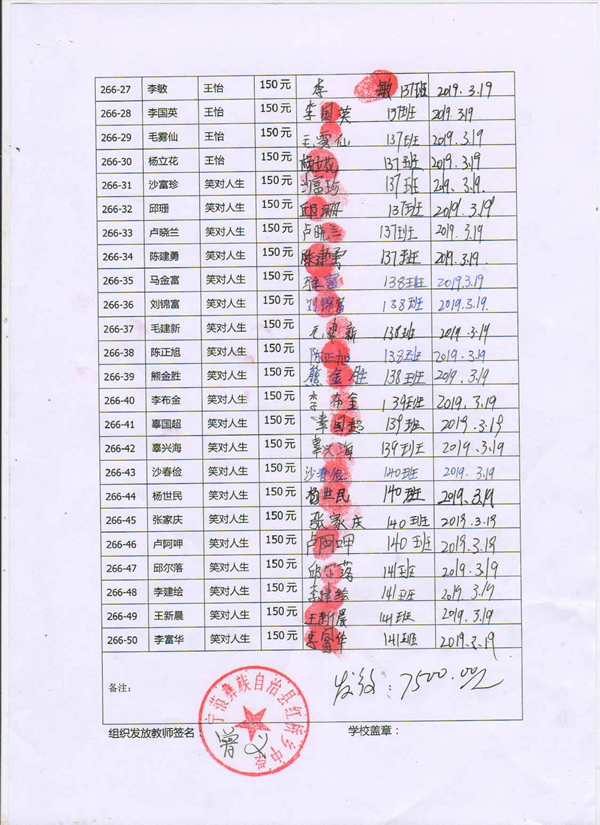 266-27 李敏 王怡 150元 李敏 137班 2019.3.19
266-28 李国英 王怡 150元 李国英 137班 2019.3.19
266-29 毛雾仙 王怡 150元 毛雾仙 137班 2019.3.19
266-30 杨立花 王怡 150元 杨立花 137班 2019.3.19
266-31 沙富珍 笑对人生 150元 沙富珍 137班 2019.3.19
266-32 邱珊 笑对人生 150元 邱珊 137班 2019.3.19
266-33 卢晓兰 笑对人生 150元 卢晓兰 137班 2019.3.19
266-34 陈建勇 笑对人生 150元 陈建勇 137班 2019.3.19
266-35 马金富 笑对人生 150元 138班 2019.3.19
266-36 刘锦富 笑对人生 150元 刘锦富 138班 2019.3.19
266-37 毛建新 笑对人生 150元 毛建新 138班 2019.3.19
266-38 陈正旭 笑对人生 150元 陈正旭 138班 2019.3.19
266-39 熊金胜 笑对人生 150元 熊金胜 138班 2019.3.19
266-40 李布金 笑对人生 150元 李布金 139班 2019.3.19
266-41 辜国超 笑对人生 150元 辜国超 139班 2019.3.19
266-42 辜兴海 笑对人生 150元 辜兴海 139班 2019.3.19
266-43 沙春俭 笑对人生 150元 沙春俭 140班 2019.3.19
266-44 杨世民 笑对人生 150元 杨世民 140班 2019.3.19
266-45 张家庆 笑对人生 150元 张家庆 140班 2019.3.19
266-46 卢阿呷 笑对人生 150元 卢阿呷 140班 2019.3.19
266-47 邱尔落 笑对人生 150元 邱尔落 141班 2019.3.19
266-48 李建绘 笑对人生 150元 李建绘 141班 2019.3.19
266-49 王新晨 笑对人生 150元 王新晨 141班 2019.3.19
266-50 李富华 笑对人生 150元 李富华 141班 2019.3.19
备注: 发放:7500.00元
宁蒗彝族自治县红桥乡中学
组织发放教师签名: 学校盖章: